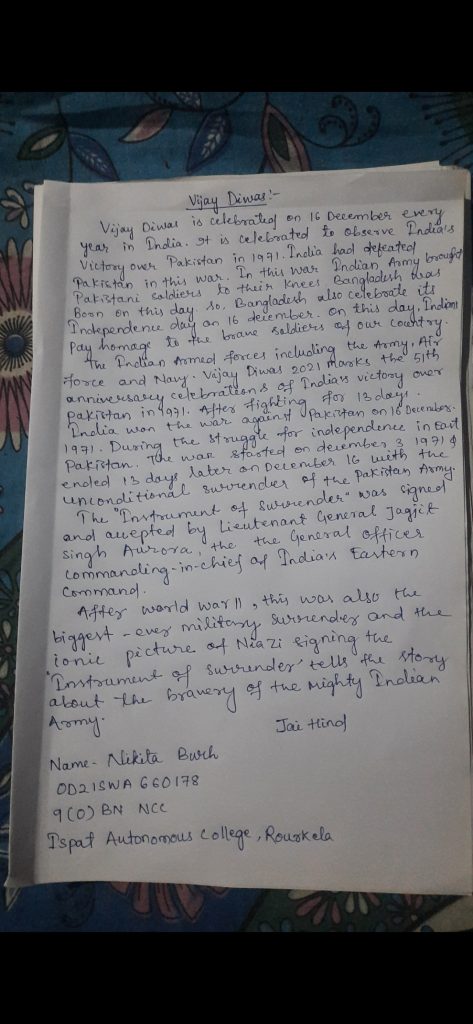 Vijay Diwas:-
Vijay Diwas is celebrated on 16 December every
year in India. It is celebrated to observe India's
Victory over Pakistan in 1971. India had defeated
Pakistan in this war. In this war Indian Army brought
Pakistani soldiers to their knees Bangladesh was
Born on this day. So, Bangladesh also celebrate its
Independence day on 16 december. On this day, Indians
Pay homage to the brave soldiers of our country.
The Indian Armed forces including the Army, Air
force and Navy. Vijay Diwas 2021 marks the 51th
anniversary celebrations of India's victory over
Pakistan in 1971. After fighting for 13 days.
India won the war against Pakistan on 16 December.
1971. During the struggle for independence in East
Pakistan. The war started on december 3 1971 &
ended 13 days later on December 16 with the
unconditional surrender of the Pakistan Army.
The "Instrument of Surrender" was signed
and accepted by Lieutenant General Jagjit
Singh Aurora, the the General officer
commanding-in-chief of India's Eastern
Command.
After world war II, this was also the
biggest-ever military surrender and the
ionic picture of Niazi signing the
"Instrument of surrender' tells the story
about the bravery of the mighty Indian
Army.
Jai Hind
Name- Nikita Burh
OD21SWA 660178
9(O) BN NCC
Ispat Autonomous College, Rourkela